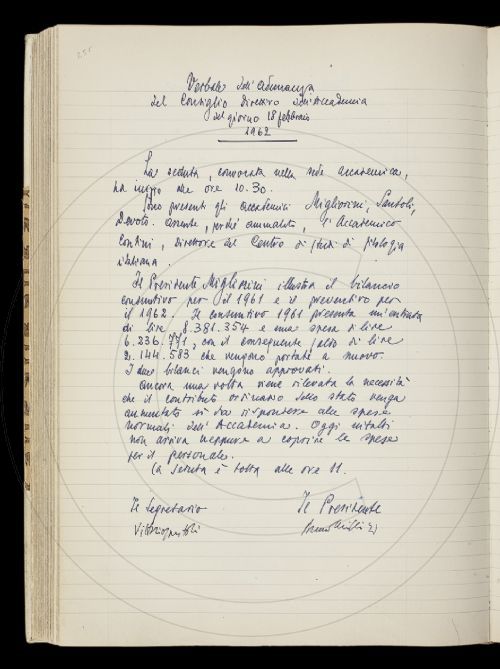 Verbale dell'Adunanza
del Consiglio Direttivo dell'Accademia
del giorno 18 febbraio
1962
La seduta, convocata nella sede accademica,
ha inizio alle ore 10.30.
Sono presenti gli accademici Migliorini, Santoli,
Devoto. Assente, perché ammalato, l'Accademico
Contini, direttore del Centro di studi di filologia
italiana.
Il Presidente Migliorini illustra il bilancio
consuntivo per il 1961 e il preventivo per
il 1962. Il consuntivo 1961 presenta un'entrata
di lire 8.381.354 e una spesa di lire
6.236.771, con il conseguente saldo di lire
2.144.583 che vengono portate a nuovo.
I due bilanci vengono approvati.
Ancora una volta viene rilevata la necessità
che il contributo ordinario dello stato venga
aumentato sì da rispondere alle spese
normali dell'Accademia. Oggi infatti
non arriva neppure a coprire le spese
per il personale.
La seduta è tolta alle ore 11.
Il Segretario Il Presidente
Vittorio Santoli